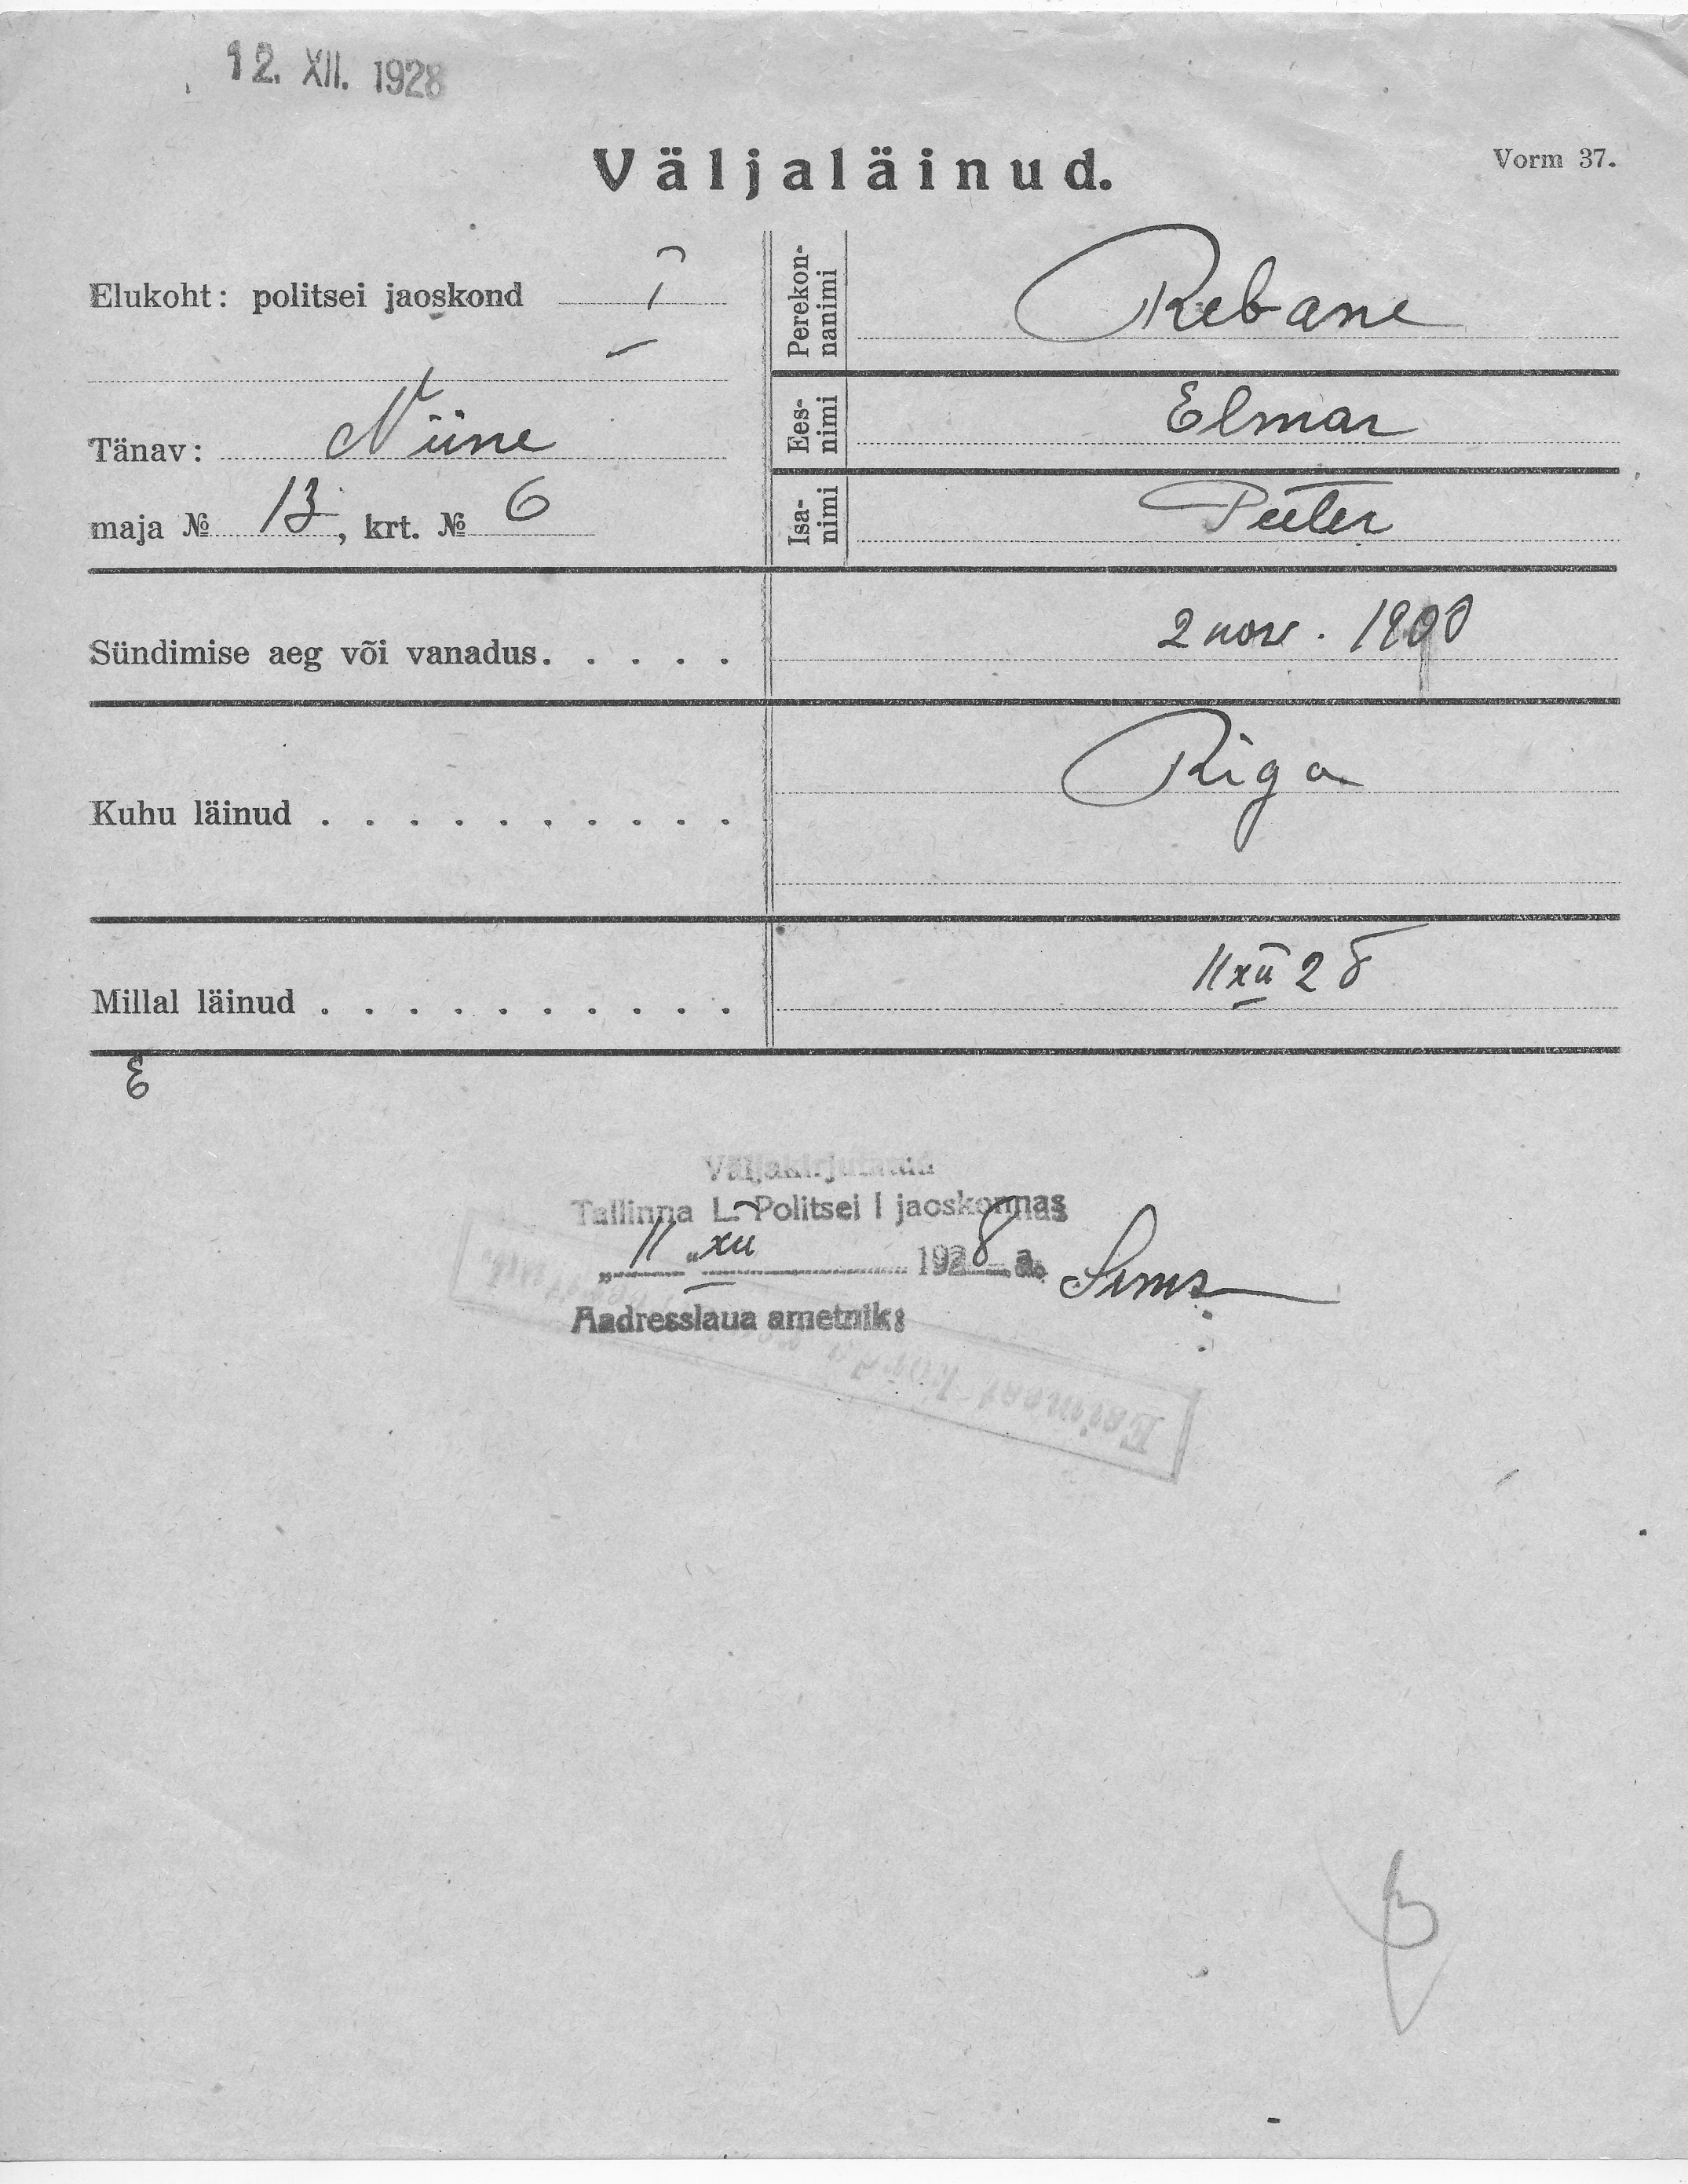 12. XII. 1928
Väljaläinud.
Vorm 37.
Elukoht: politsei jaoskond I
Tänav: Niine
maja № 13, krt. № 6
Perekon-
nanimi
Rebane
Ees-
nimi
Elmar
Isa-
nimi
Peeter
Sündimise aeg või vanadus. . . . . 2 nov. 1900
Kuhu läinud . . . . . . . . . . Riga
Millal läinud . . . . . . . . . . 11 XII 28
Väljakirjutatud
Tallinna L. Politsei I jaoskonnas
„11" XII 1928 a.
Aadresslaua ametnik:
Esimest korda